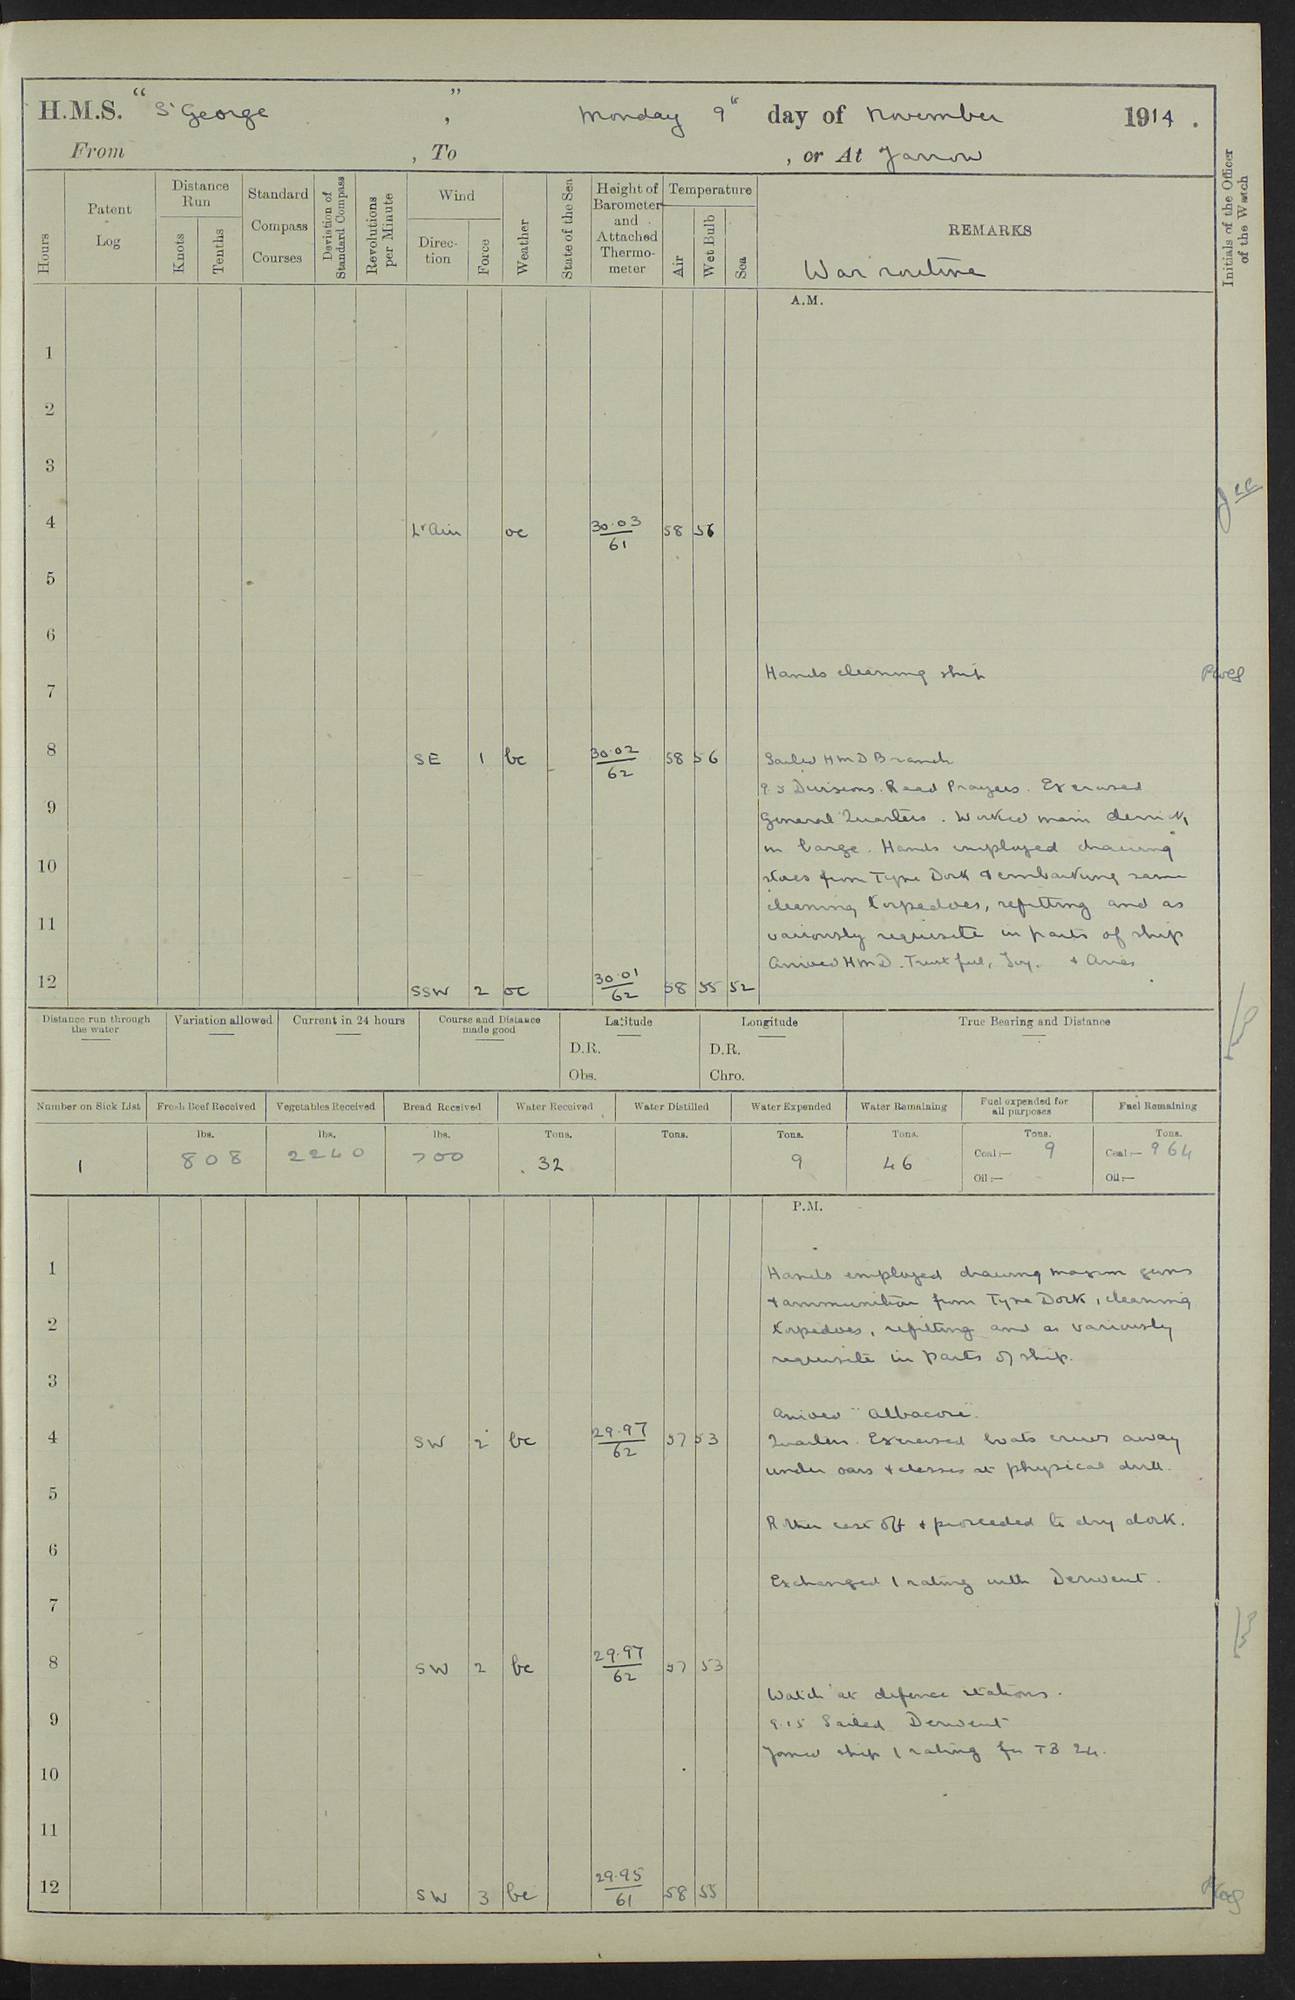 H.M.S. "St George", Monday 9th day of November 1914.
From , To , or At Jarrow
Hours
Patent Log
Distance Run
Knots
Tenths
Standard Compass Courses
Deviation of Standard Compass
Revolutions per Minute
Wind
Direction
Force
Weather
State of the Sea
Height of Barometer and Attached Thermometer
Temperature
Air
Wet Bulb
Sea
REMARKS
War routine
Initials of the Officer of the Watch
A.M.
1
2
3
4 Lt Airs oc 30.03/61 58 56
5
6
Hands cleaning ship
7
8 SE 1 bc 30.02/62 58 56 Sailed HMD Branch
9.5 Divisions. Read Prayers. Exercised
9 General Quarters. Worked main derrick
in barge. Hands employed drawing
10 stores from Tyne Dock & embarking same
cleaning torpedoes, refitting and as
11 variously requisite in parts of ship
Arrived HMD. Trustful, Ivy. & Aries
12 SSW 2 oc 30.01/62 58 55 52
Distance run through the water
Variation allowed
Current in 24 hours
Course and Distance made good
Latitude
D.R.
Obs.
Longitude
D.R.
Chro.
True Bearing and Distance
Number on Sick List
Fresh Beef Received
Vegetables Received
Bread Received
Water Received
Water Distilled
Water Expended
Water Remaining
Fuel expended for all purposes
Fuel Remaining
lbs. lbs. lbs. Tons. Tons. Tons. Tons. Tons. Tons.
1 808 2240 700 32 9 46 Coal:— 9 Coal:— 964
Oil:— Oil:—
P.M.
1 Hands employed drawing maxim guns
& ammunition from Tyne Dock, cleaning
2 torpedoes, refitting and as variously
requisite in parts of ship.
3
Arrived "Albacore".
4 SW 2 bc 29.97/62 57 53 Quarters. Exercised boats crews away
under oars & classes at physical drill.
5
Rother cast off & proceeded to dry dock.
6
Exchanged 1 rating with Derwent.
7
8 SW 2 bc 29.97/62 57 53
Watch at defence stations.
9 9.15 Sailed Derwent
Joined ship 1 rating fm TB 24.
10
11
12 SW 3 bc 29.95/61 58 55